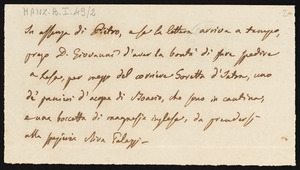 MANZ. B. I. 49/2
In assenza di Pietro, e se la lettera arriva a tempo,
prego D. Giovanni d'aver la bontà di fare spedire
a Lesa, per mezzo del corriere Goretta d'Intra, uno
de' panieri d'acqua di Monaco, che sono in cantina,
e una boccetta di magnesia inglese, da prendersi
alla